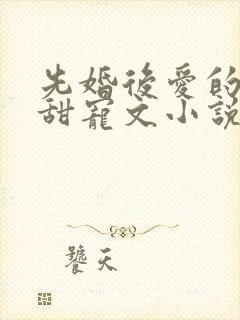 先婚後愛的
甜寵文小說
饕天